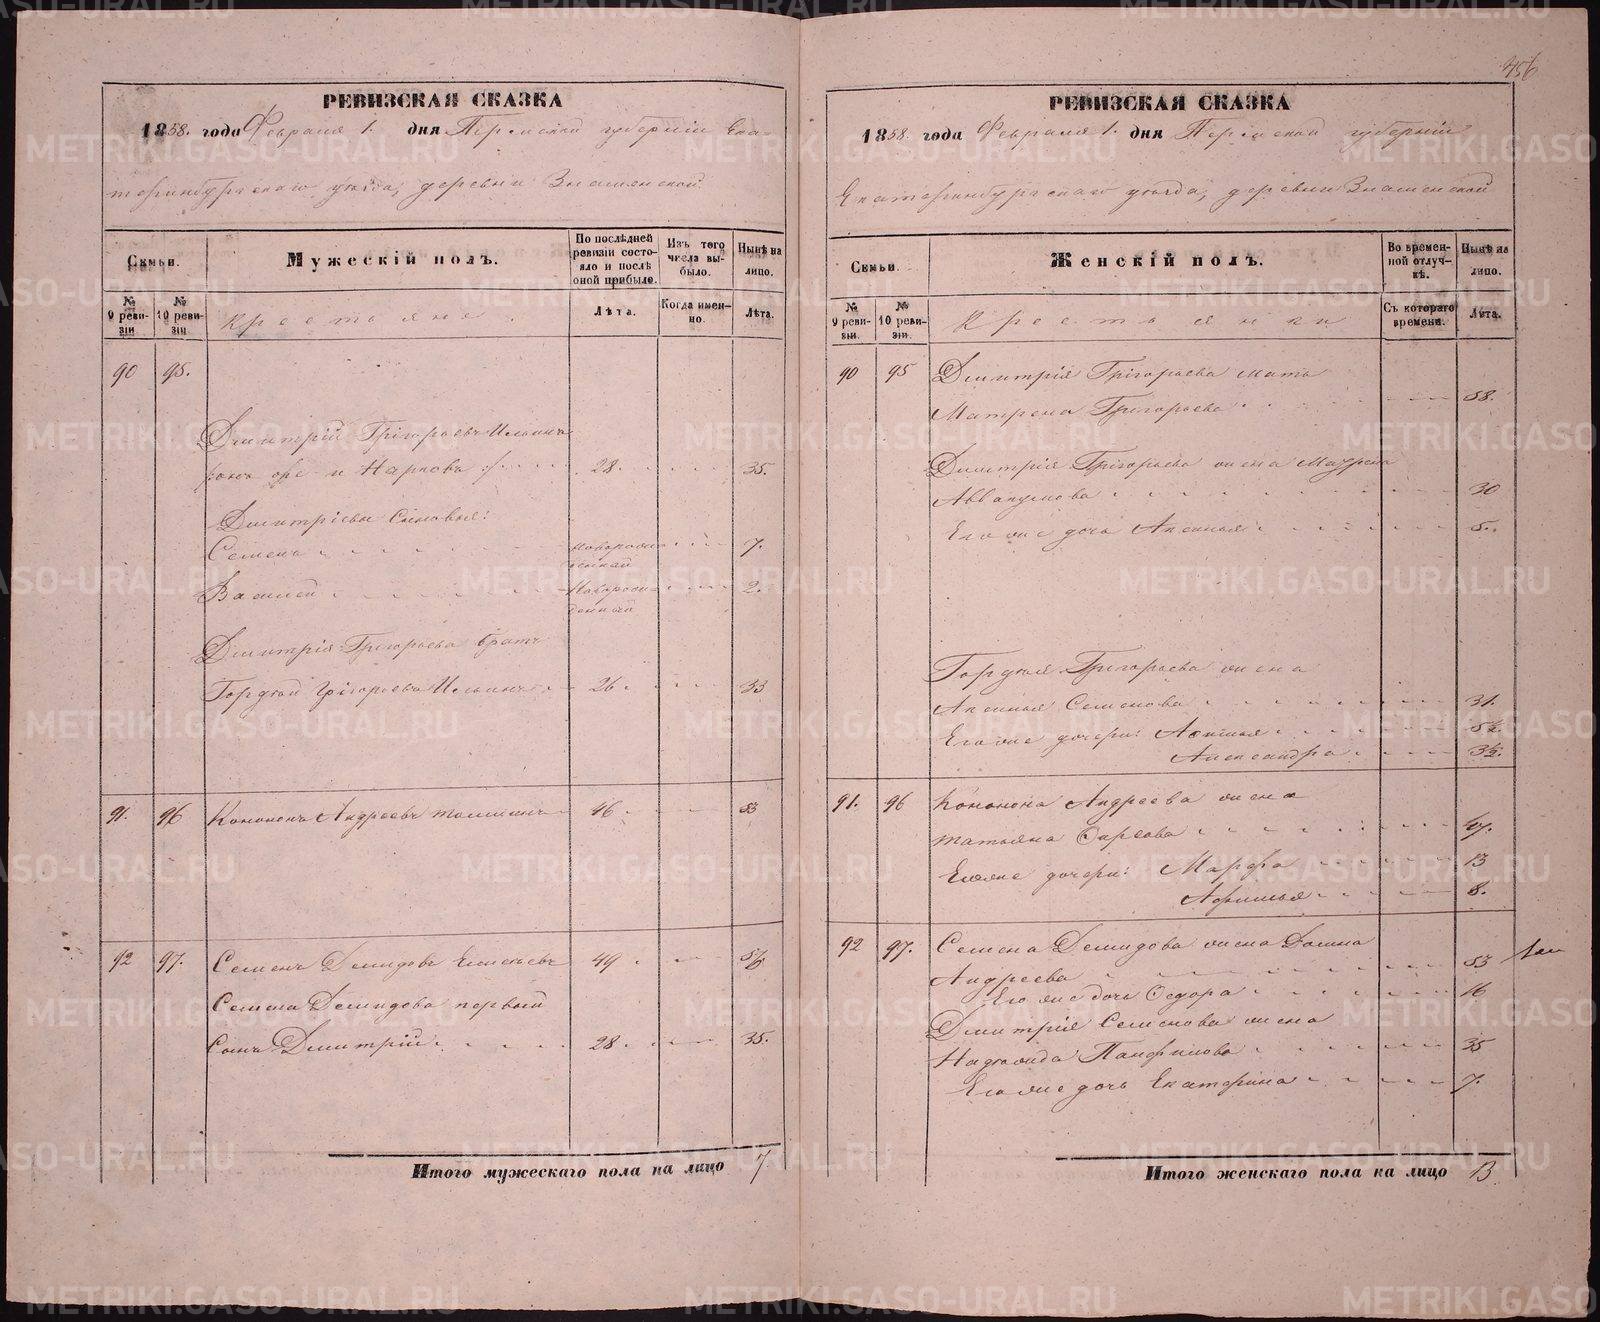 456
РЕВИЗСКАЯ СКАЗКА
1858. года Февраля 1. дня Пермской губернiи Ека-
теринбургскаго уѣзда, деревни Знаменской
Семьи.
Мужескiй полъ.
По послѣдней ревизiи состояло и послѣ оной прибыле.
Изъ того числа выбыло.
Нынѣ на лицо.
№ 9 ревизiи
№ 10 ревизiи
Крестьяне
Лѣта.
Когда именно.
Лѣта.
90 95.
Дмитрiй Григорьевъ Ильинъ
28. 35.
Дмитрiевы Сыновья:
Семенъ новорожденный 7.
Василей Новорожденный 2.
Дмитрiя Григорьева братъ
Гордѣй Григорьевъ Ильинъ 26. 33
91. 96 Кононъ Андреевъ 46 53
92 97. Семенъ Демидовъ 49 56
Семена Демидова первый
сынъ Дмитрiй 28. 35.
Итого мужескаго пола на лицо 7
РЕВИЗСКАЯ СКАЗКА
1858. года Февраля 1. дня Пермской губернiи
Екатеринбургскаго уѣзда, деревни Знаменской
Семьи.
Женскiй полъ.
Во временной отлучкѣ.
Нынѣ на лицо.
№ 9 ревизiи.
№ 10 ревизiи.
Крестьянки
Съ котораго времени.
Лѣта.
90 95 Дмитрiя Григорьева мать
Матрена Григорьева 58.
Дмитрiя Григорьева жена
30
Его же дочь Аксинья 5.
Гордѣя Григорьева жена
Аксинья Семенова 31.
Его же дочери: Афимья 5½
Александра 3½.
91. 96 Конона Андреева жена
Татьяна 47.
Его же дочери: Марфа 13
Афимья 8.
92 97. Семена Демидова жена Домна
Андреева 53
Его же дочь Федора 16
Дмитрiя Семенова жена
Надежда Панфилова 35
Его же дочь Екатерина 7.
Итого женскаго пола на лицо 13
METRIKI.GASO-URAL.RU